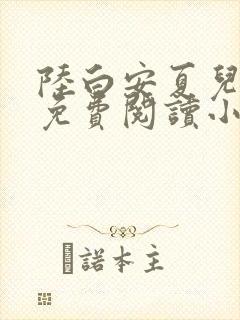 陸白安夏兒
免費閱讀小
諾本主